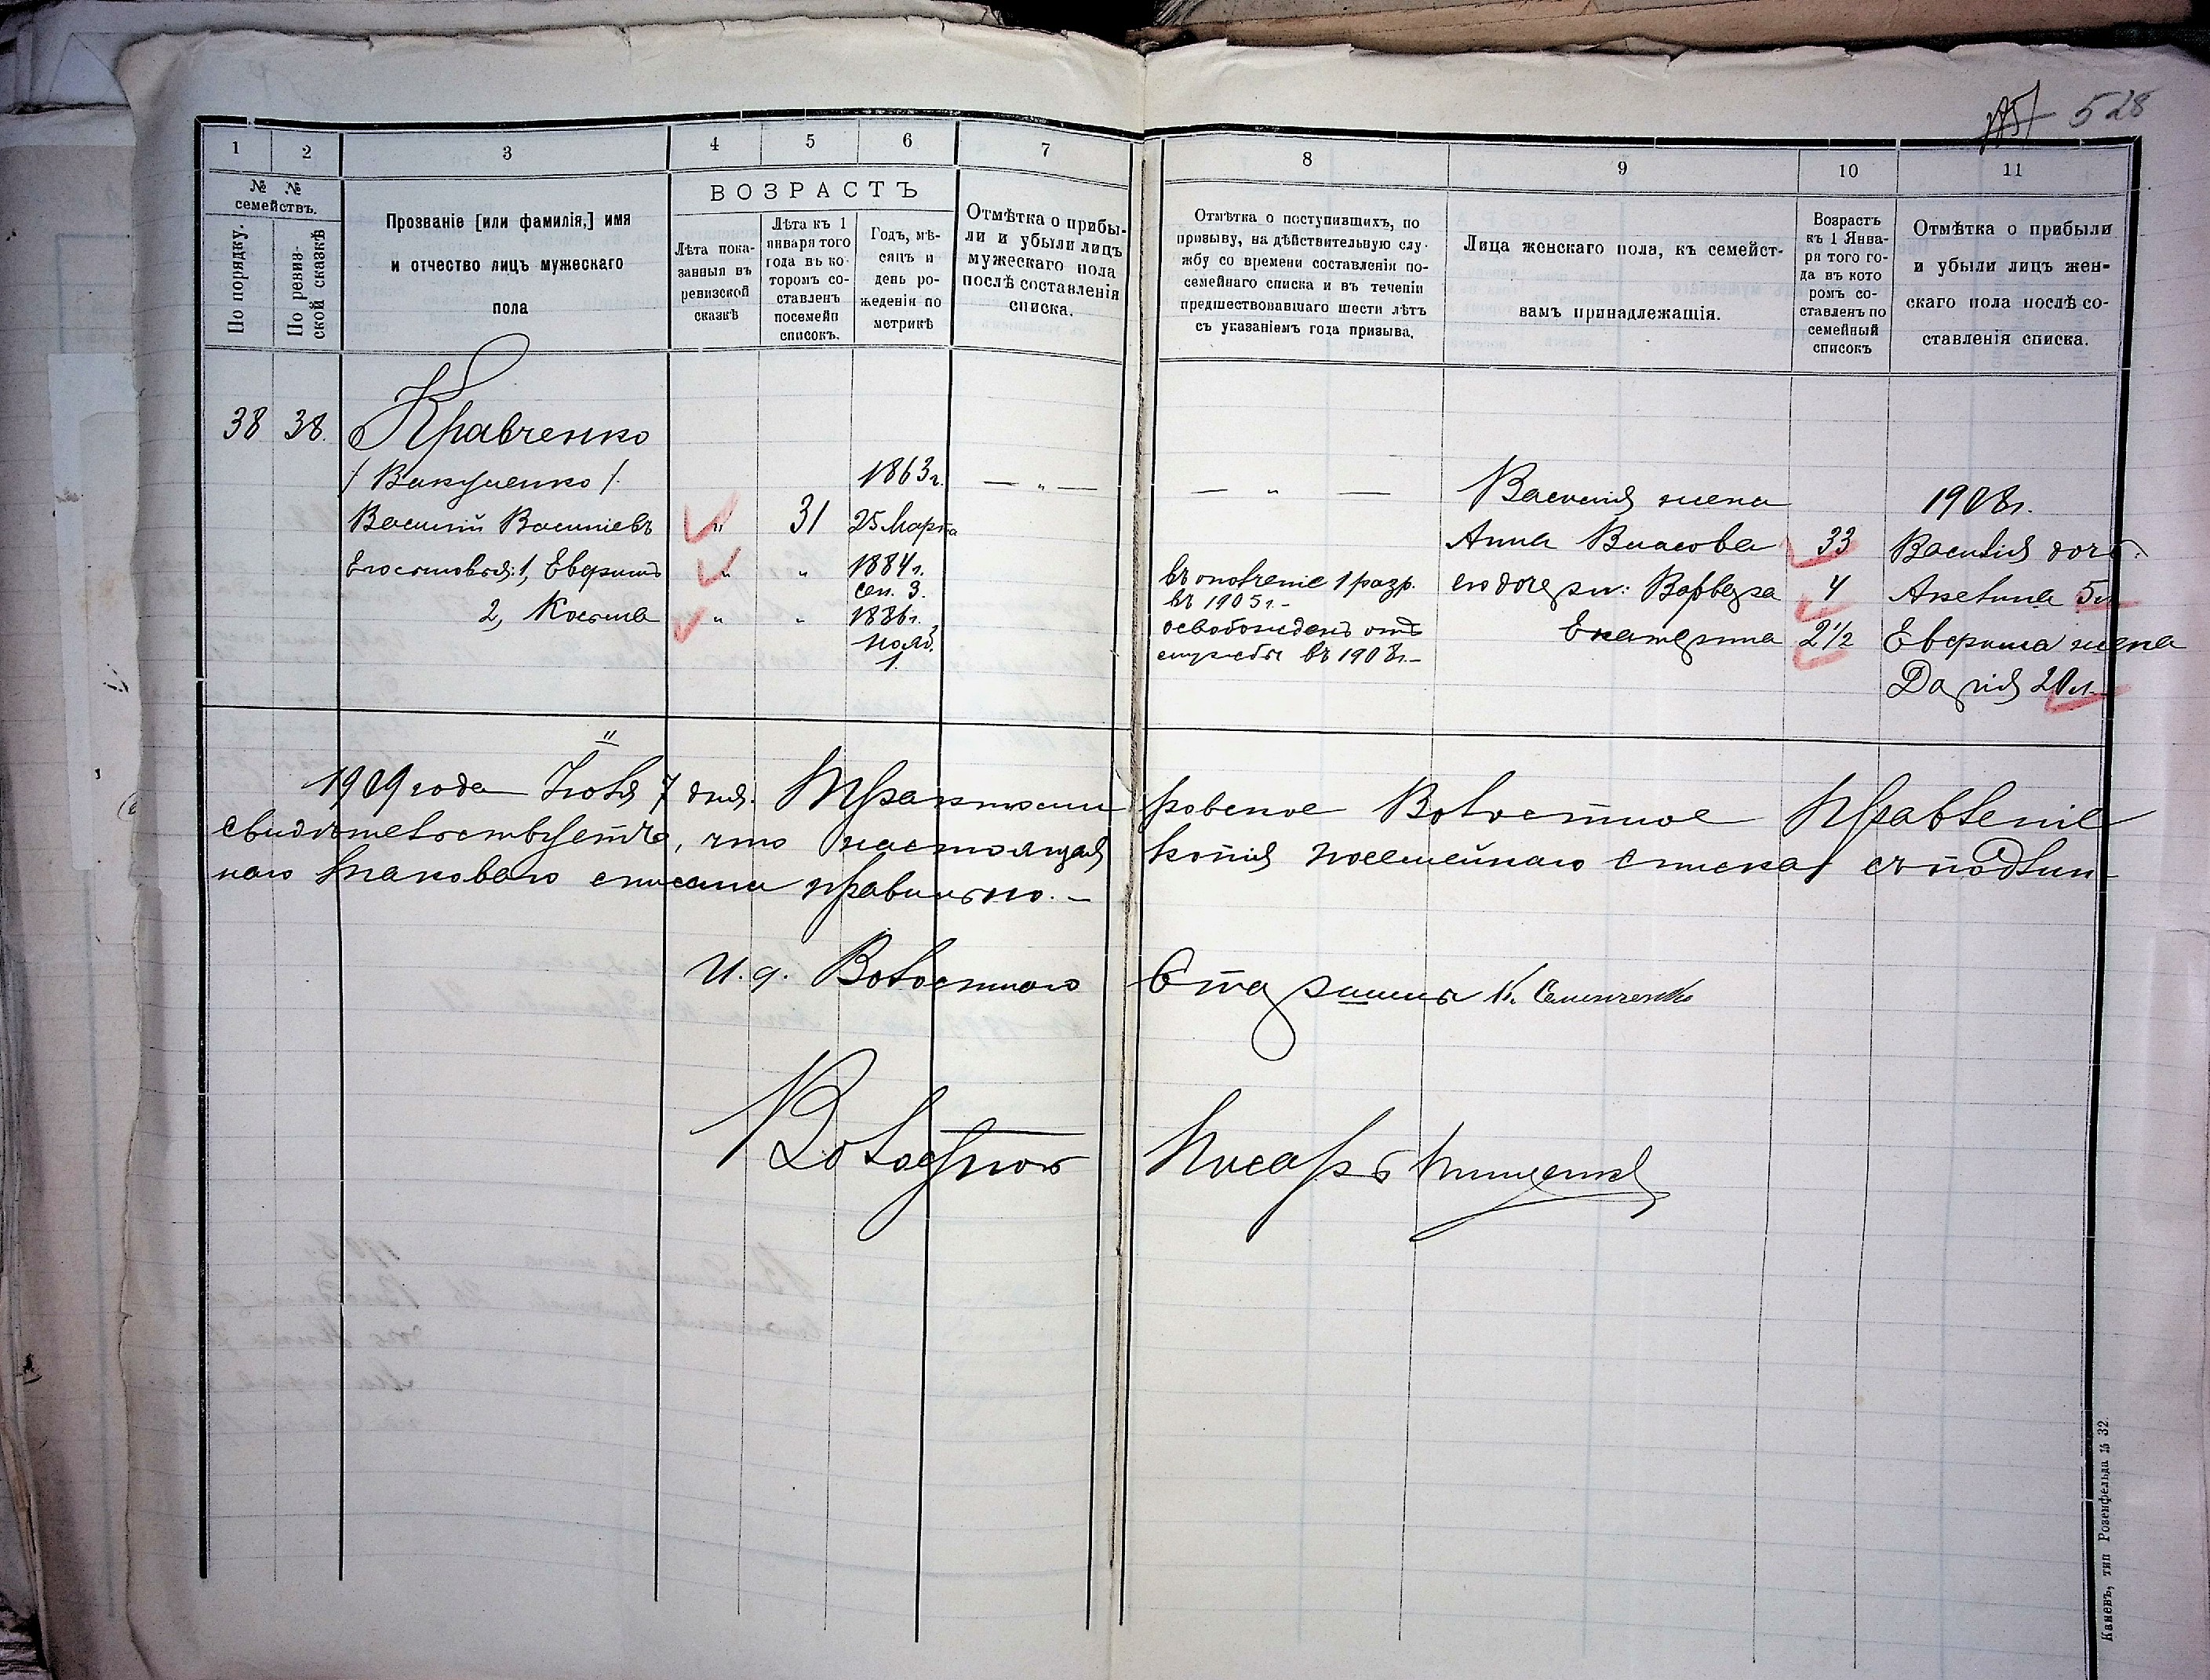 528
1 2 3 4 5 6 7 8 9 10 11
№ № семействъ.
По порядку.
По ревиз-
ской сказкѣ
Прозваніе [или фамилія,] имя
и отчество лицъ мужескаго
пола
ВОЗРАСТЪ
Лѣта пока-
занныя въ
ревизской
сказкѣ
Лѣта къ 1
января того
года въ ко-
торомъ со-
ставленъ
посемейн
списокъ.
Годъ, мѣ-
сяцъ и
день ро-
жеденія по
метрикѣ
Отмѣтка о прибы-
ли и убыли лицъ
мужескаго пола
послѣ составленія
списка.
Отмѣтка о поступившихъ, по
призыву, на дѣйствительную слу-
жбу со времени составленія по-
семейнаго списка и въ теченіи
предшествовавшаго шести лѣтъ
съ указаніемъ года призыва.
Лица женскаго пола, къ семейст-
вамъ принадлежащія.
Возрастъ
къ 1 Янва-
ря того го-
да въ кото
ромъ со-
ставленъ по
семейный
списокъ
Отмѣтка о прибыли
и убыли лицъ жен-
скаго пола послѣ со-
ставленія списка.
38 38. Кравченко
/Вакуленко/. 1863 г. — " — — " — Василія жена 1908 г.
Василій Васильевъ " 31 25 Марта Анна Власова 33 Василія дочь:
Его сыновья: 1, Ефримъ " " 1884 г. сен. 3. въ ополченіе 1 разр. въ 1905 г. — его дочери: Варвара 4 Акелина 5 л
2, Косьма " " 1886 г. нояб. 1. освобожденъ отъ службы въ 1908 г. — Екатерина 2 1/2 Ефрима жена
Дарія 20 л.
1909 года Іюля 7 дня. Волостное Правленіе
свидѣтельствуетъ, что настоящая копія посемейнаго списка съ подлин-
наго таковаго списана правильно. —
И. д. Волостного Старшины К. Семенченко
Волостной Писарь
Каневъ, тип Розенфельда № 32.